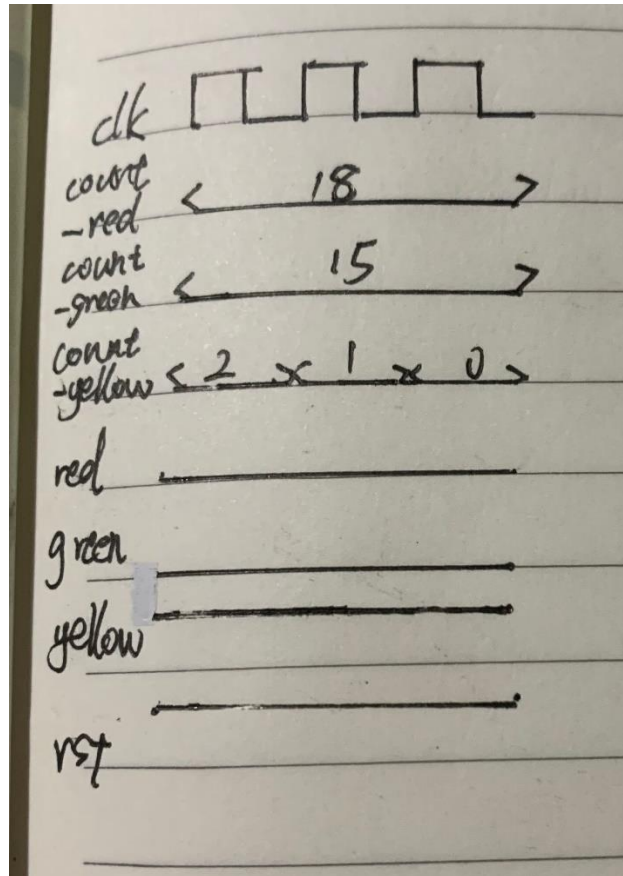 clk
count
-red
18
count
-green
15
count
-yellow
2 x 1 x 0
red
green
yellow
rst